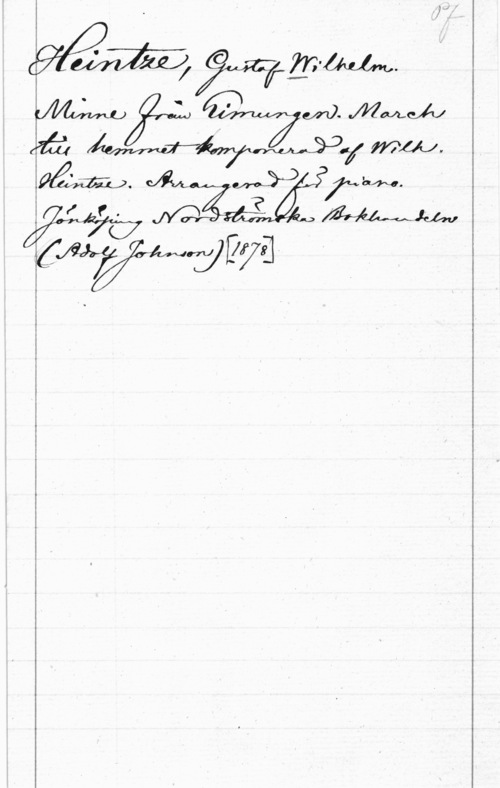 Pf
Heintze, Gustaf Wilhelm.
Minne från Timungen. March
till hemmet komponerad af Wilh.
Heintze. Arrangerad för piano.
Jönköping Nordströmska Bokhandeln
(Adolf Johnson) [1878]